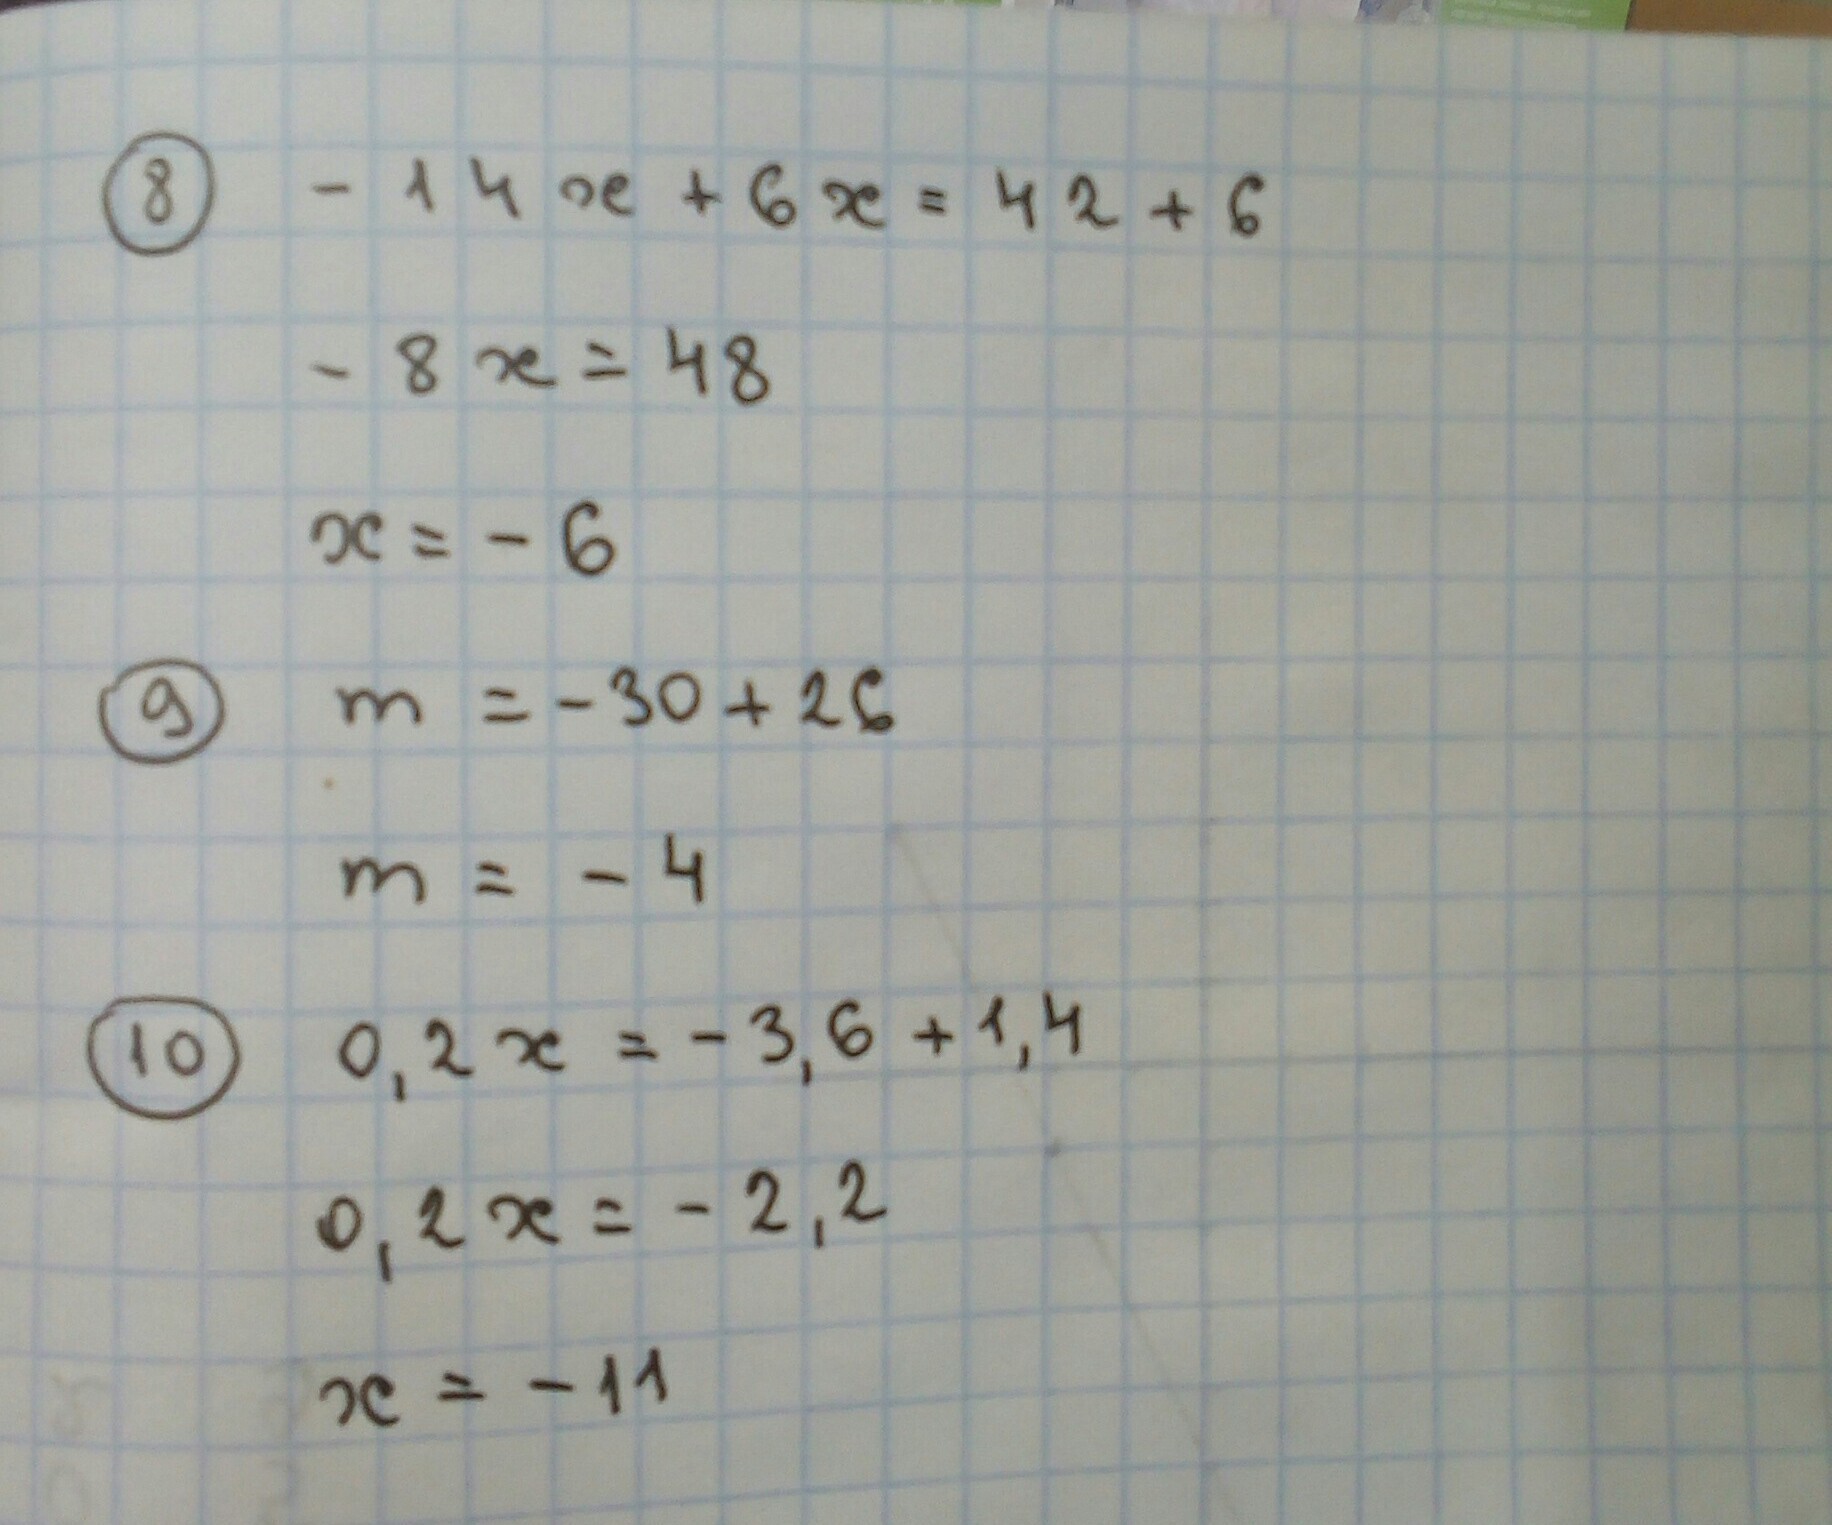 8 - 14x + 6x = 42 + 6
- 8x = 48
x = - 6
9 m = - 30 + 26
m = - 4
10 0,2x = - 3,6 + 1,4
0,2x = - 2,2
x = - 11